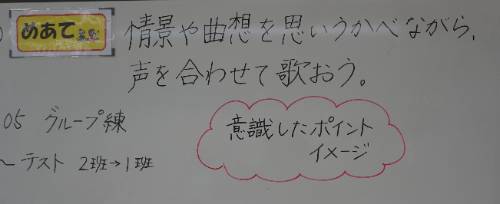 めあて
情景や曲想を思いうかべながら、
声を合わせて歌おう。
05 グループ練
〜テスト 2班→1班
意識したポイント
イメージ